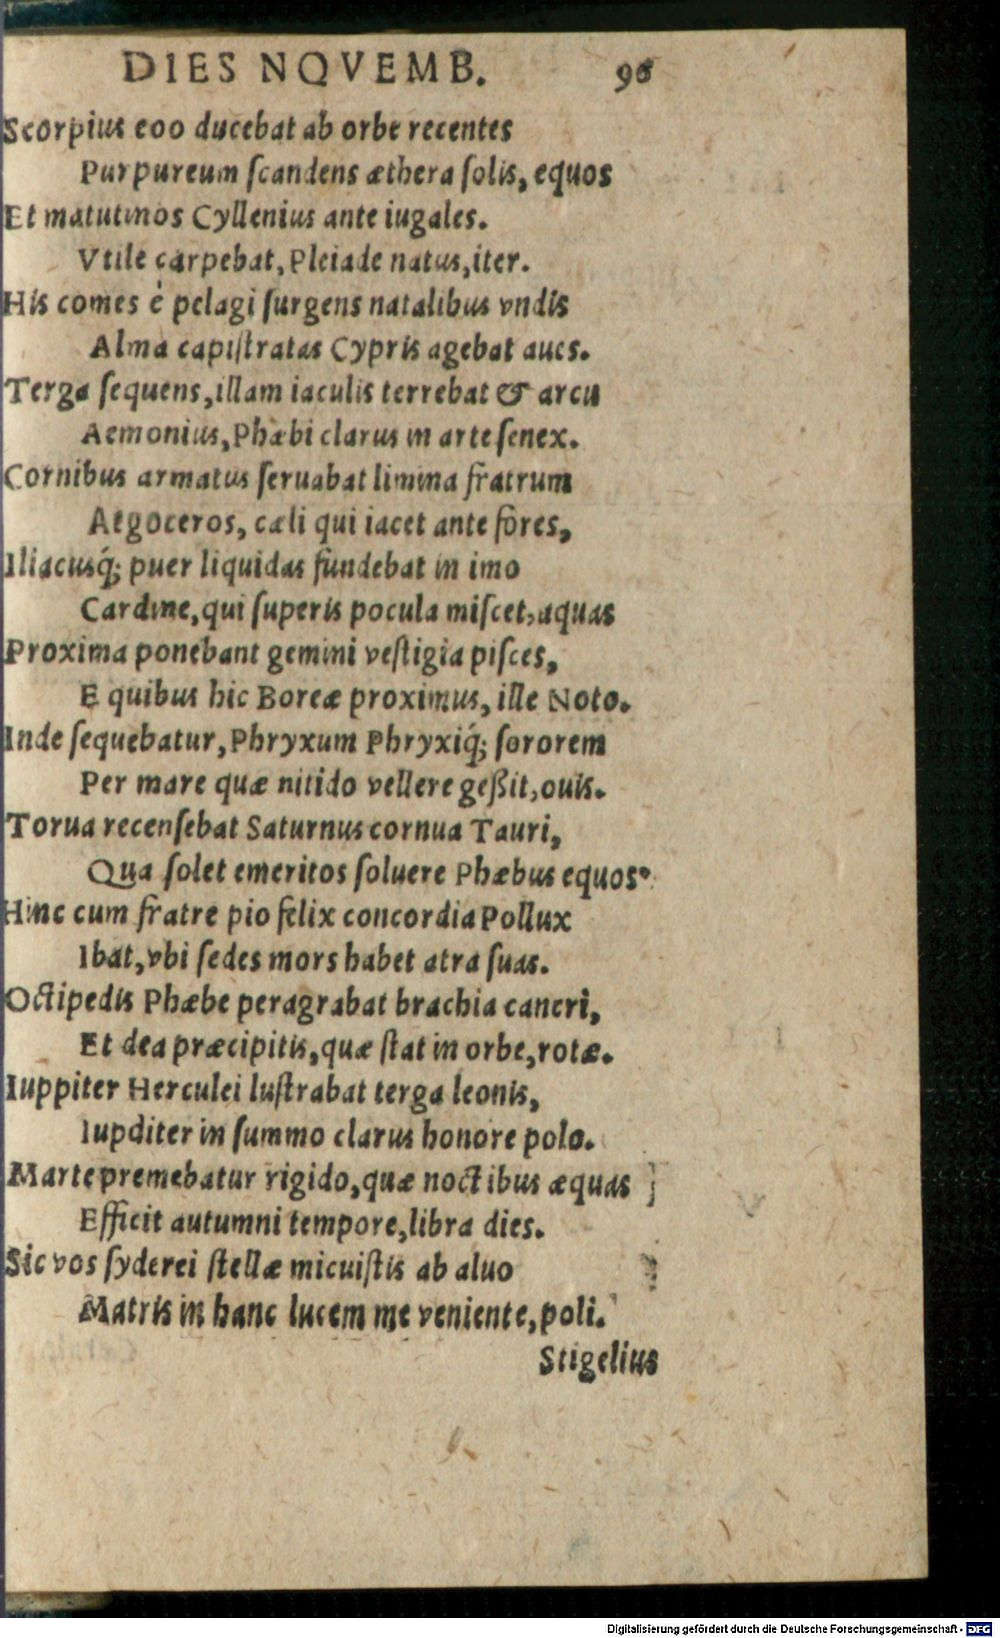 DIES NOVEMB. 96
Scorpius eoo ducebat ab orbe recentes
Purpureum ſcandens æthera ſolis, equos
Et matutinos Cyllenius ante iugales.
Vtile carpebat, Pleiade natus, iter.
His comes è pelagi ſurgens natalibus vndis
Alma capiſtratas Cypris agebat aues.
Terga ſequens, illam iaculis terrebat & arcu
Aemonius, Phæbi clarus in arte ſenex.
Cornibus armatus ſeruabat limina fratrum
Aegoceros, cæli qui iacet ante fores,
Iliacusq́; puer liquidas fundebat in imo
Cardine, qui ſuperis pocula miſcet, aquas
Proxima ponebant gemini veſtigia piſces,
E quibus hic Boreæ proximus, ille Noto.
Inde ſequebatur, Phryxum Phryxiq́; ſororem
Per mare quæ nitido vellere geßit, ouis.
Torua recenſebat Saturnus cornua Tauri,
Qua ſolet emeritos ſoluere Phæbus equos.
Hinc cum fratre pio felix concordia Pollux
Ibat, vbi ſedes mors habet atra ſuas.
Octipedis Phæbe peragrabat brachia cancri,
Et dea præcipitis, quæ ſtat in orbe, rotæ.
Iuppiter Herculei luſtrabat terga leonis,
Iupditer in ſummo clarus honore polo.
Marte premebatur rigido, quæ noctibus æquas
Efficit autumni tempore, libra dies.
Sic vos ſyderei ſtellæ micuiſtis ab aluo
Matris in hanc lucem me veniente, poli.
Stigelius
Digitalisierung gefördert durch die Deutsche Forschungsgemeinschaft - DFG